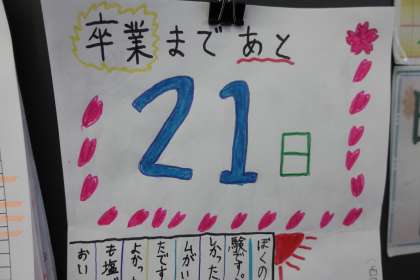 卒業まであと
21日
ぼくの
験です。
しかった
ムがい
たです
よかっ
も塩
おい